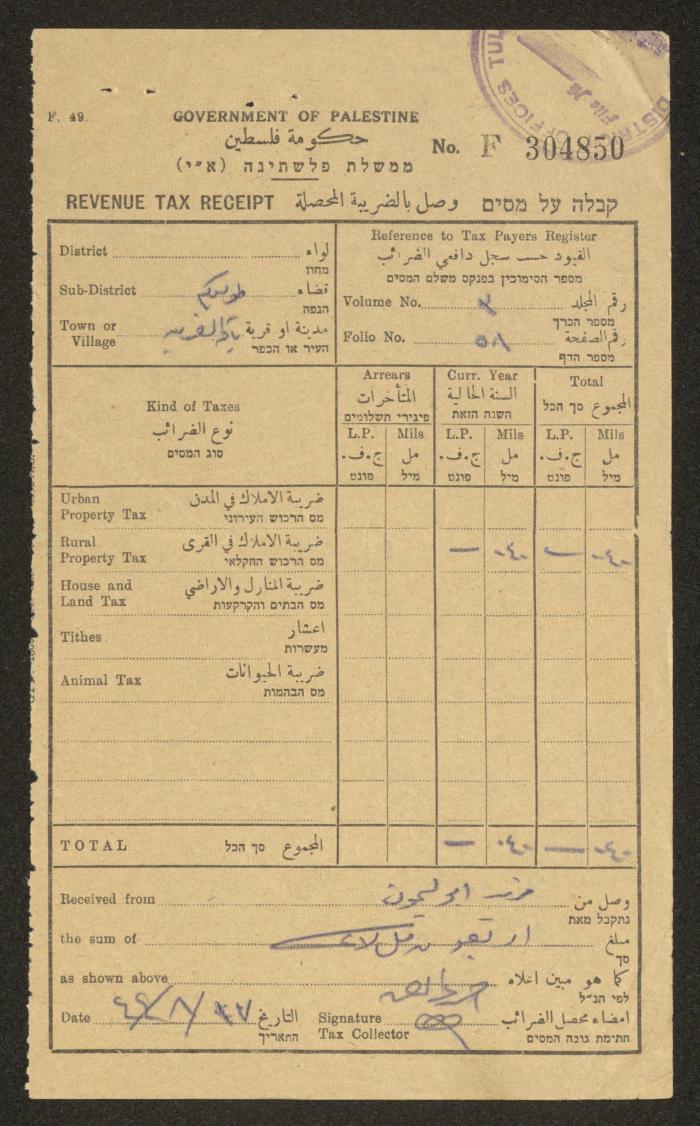 DISTRICT OFFICES TUL
File No
F. 49.
GOVERNMENT OF PALESTINE
حكومة فلسطين
ממשלת פלשתינה (א״י)
No. F 304850
REVENUE TAX RECEIPT وصل بالضريبة المحصلة קבלה על מסים
District لواء
מחוז
Sub-District طولكرم قضاء
הנפה
Town or Village باقة الغربية مدينة او قرية
העיר או הכפר
Reference to Tax Payers Register
القيود حسب سجل دافعي الضرائب
מספר הסימוכין בפנקס משלם המסים
Volume No. رقم المجلد
מספר הכרך
Folio No. ٥٨ رقم الصفحة
מספר הדף
Kind of Taxes
نوع الضرائب
סוג המסים
Arrears Curr. Year Total
المتأخرات السنة الحالية المجموع סך הכל
פיגורי תשלומים השנה הזאת
L.P. Mils L.P. Mils L.P. Mils
ج.ف. مل ج.ف. مل ج.ف. مل
פונט מיל פונט מיל פונט מיל
Urban ضريبة الاملاك في المدن
Property Tax מס הרכוש העירוני
Rural ضريبة الاملاك في القرى
Property Tax מס הרכוש החקלאי
— ٠٤٠ — ٠٤٠
House and ضريبة المنازل والاراضي
Land Tax מס הבתים והקרקעות
Tithes اعشار
מעשרות
Animal Tax ضريبة الحيوانات
מס הבהמות
TOTAL المجموع סך הכל — ٠٤٠ — ٠٤٠
Received from وصل من
נתקבל מאת
the sum of مبلغ
סך
as shown above كما هو مبين اعلاه
לפי הנ״ל
Date التاريخ
התאריך
Signature امضاء محصل الضرائب
Tax Collector חתימת גובה המסים